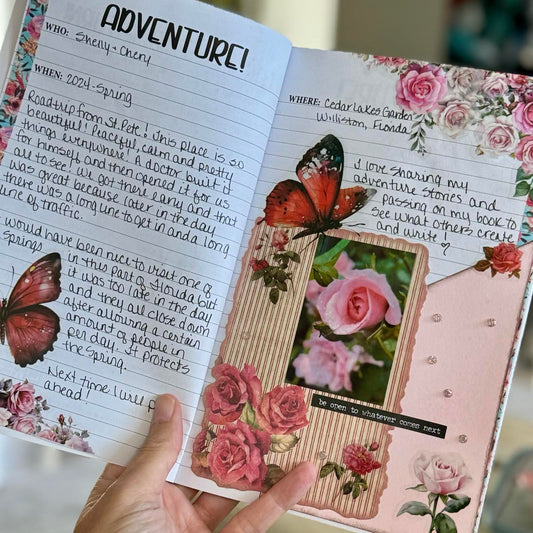 ADVENTURE!
WHO: Shelly + Chery
WHEN: 2024 - Spring
Roadtrip from St. Pete! This place is so
beautiful! Peaceful, calm and pretty
things everywhere! A doctor built it
for himself and then opened it for us
all to see! We got there early and that
was great because later in the day
there was a long line to get in and a long
line of traffic.
would have been nice to visit one of
springs in this part of Florida but
it was too late in the day
and they all close down
after allowing a certain
amount of people in
per day. It protects
the Spring.
Next time I will p
ahead!
WHERE: Cedar Lakes Garden
Williston, Florida
I love sharing my
adventure stories and
passing on my book to
see what others create
and write ♡
be open to whatever comes next